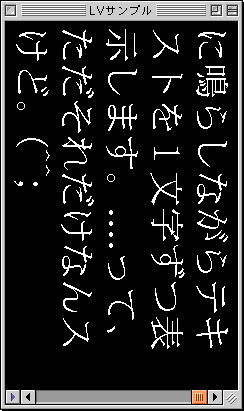 LVサンプル
に鳴らしながらテキ
ストを１文字ずつ表
示します。……って、
ただそれだけなんス
けど。(^^;